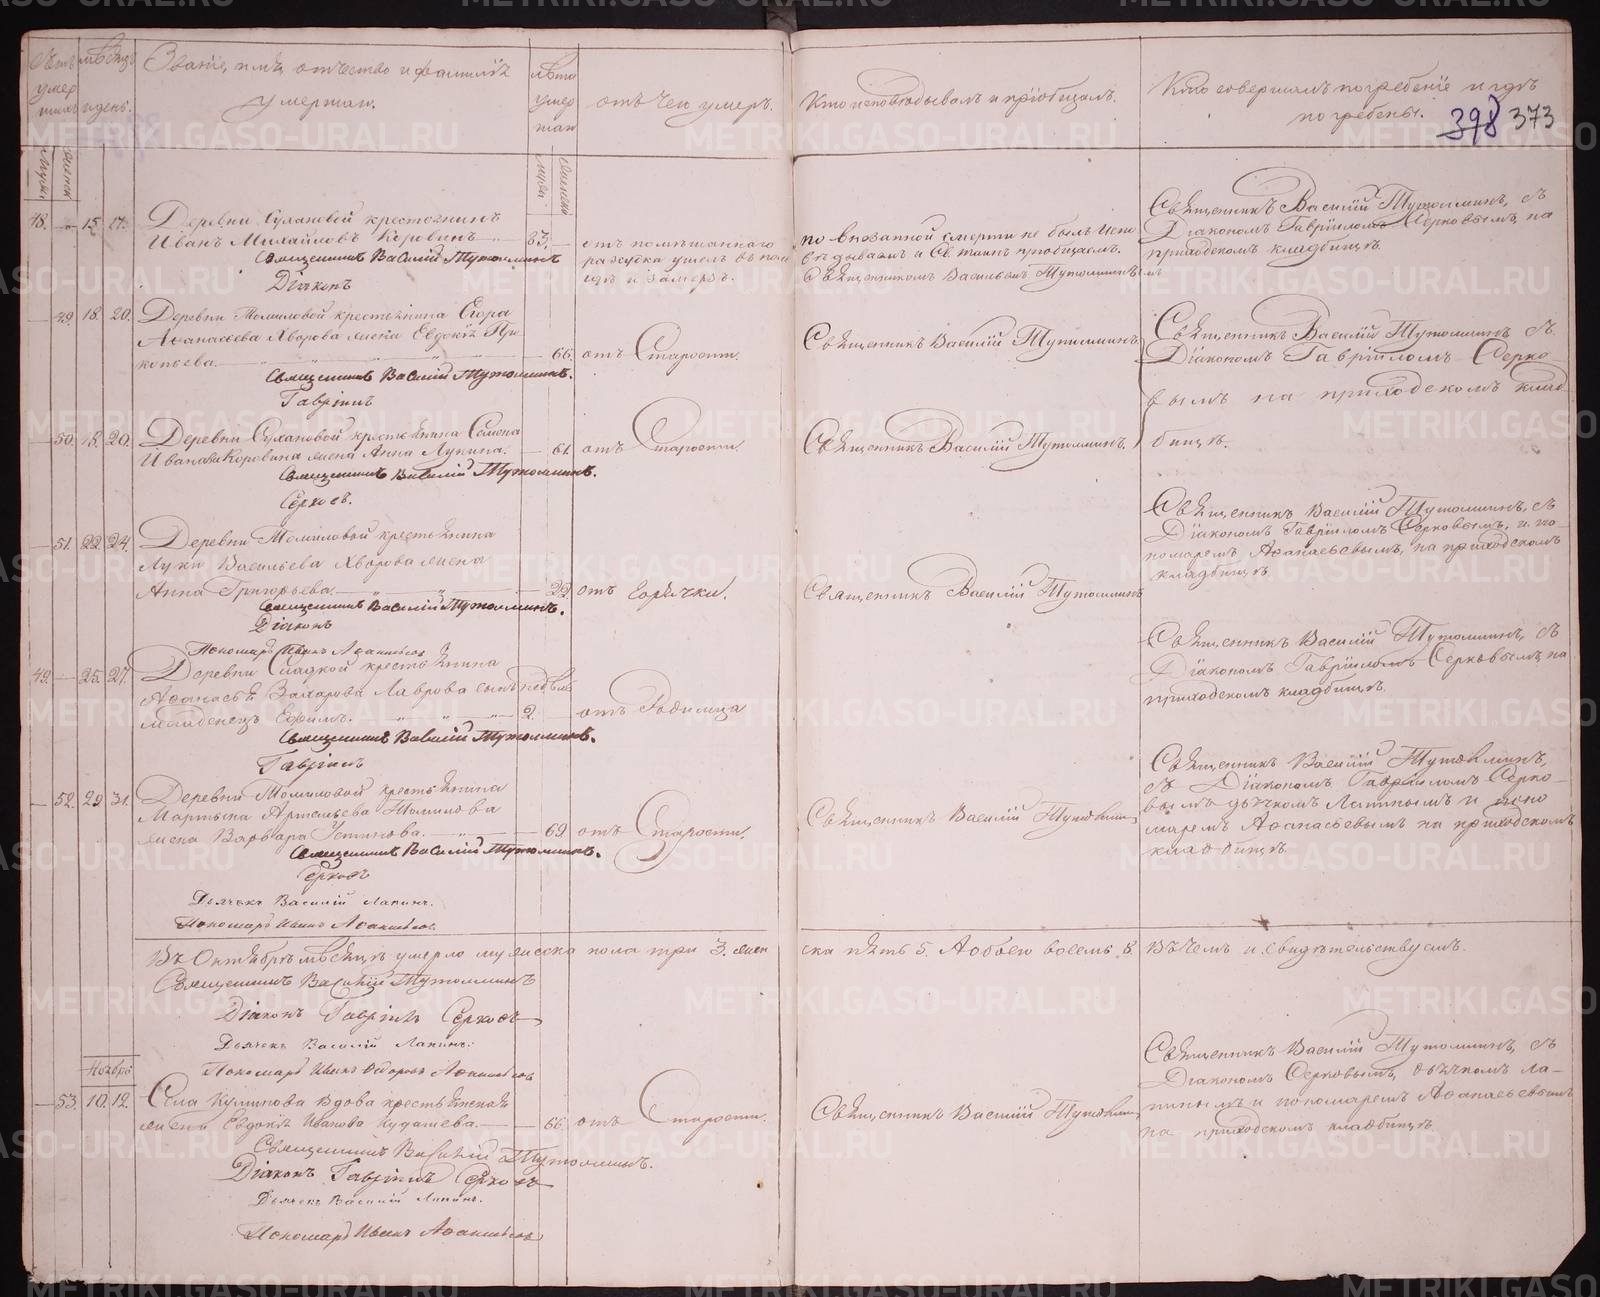 Счетъ умер шихъ
мѣсяцъ и день.
Званіе, имя, отчество и фамилія
умершаго.
лѣта умер шаго
отъ чего умеръ.
Кто исповѣдывалъ и пріобщалъ.
Кто совершалъ погребеніе и гдѣ
погребены.
398 373
Мужск. Женск.
Мужск. Женска
48. — 15. 17. Деревни Сулановой крестьянинъ
Иванъ Михайловъ Коровинъ — 83. —
отъ помѣшаннаго
разсудка ушелъ въ поле
идѣ и замерз.
по внезапной смерти не былъ испо
вѣдыванъ и Св. таинъ пріобщаемъ.
Священникомъ Васильемъ Тутолминымъ
Священникъ Василій Тутолминъ, съ
Діакономъ Гавріиломъ Серковымъ на
приходскомъ кладбищѣ.
Священникъ Василій Тутолминъ
Діаконъ
— 49. 18. 20. Деревни Томиловой крестьянина Егора
Аѳанасьева Хворова жена Евдокія Про
копьева. — 66. отъ Старости.
Священникъ Василій Тутолминъ.
Священникъ Василій Тутолминъ съ
Діакономъ Гавріиломъ Серко-
вымъ на приходскомъ клад
бищѣ.
Священникъ Василій Тутолминъ.
Гавріилъ
— 50. 18. 20. Деревни Сулановой крестьянина Семена
Иванова Коровина жена Анна Лукина. — 61. отъ Старости.
Священникъ Василій Тутолминъ.
Священникъ Василій Тутолминъ.
Серковъ.
— 51. 22. 24. Деревни Томиловой крестьянина
Луки Васильева Хворова жена
Анна Григорьева. — 22. отъ Горячки.
Священникъ Василій Тутолминъ
Священникъ Василій Тутолминъ, съ
Діакономъ Гавріиломъ Серковымъ, и по-
номаремъ Аѳанасьевымъ, на приходскомъ
кладбищѣ.
Священникъ Василій Тутолминъ.
Діаконъ
Пономарь Иванъ Аѳанасьевъ
49. — 25. 27. Деревни Сладкой крестьянина
Аѳанасья Захарова Лаврова сынъ
младенецъ Ефимъ. — 2. отъ Родимца
Священникъ Василій Тутолминъ, съ
Діакономъ Гавріиломъ Серковымъ на
приходскомъ кладбищѣ.
Священникъ Василій Тутолминъ.
Гавріилъ
— 52. 29 31. Деревни Томиловой крестьянина
Мартына Артемьева Томилова
жена Варвара Устинова. — 69 отъ Старости.
Священникъ Василій Тутолминъ
Священникъ Василій Тутолминъ,
съ Діакономъ Гавріиломъ Серко-
вымъ дьячкомъ Лапинымъ и поно
маремъ Аѳанасьевымъ на приходскомъ
кладбищѣ.
Священникъ Василій Тутолминъ.
Серковъ
Дьячекъ Василій Лапинъ.
Пономарь Иванъ Аѳанасьевъ.
Въ Октябрѣ мѣсяцѣ умерло мужеска пола три 3. жен
ска пять 5. А обоего восемь 8. Въ чемъ и свидѣтельствуемъ.
Священникъ Василій Тутолминъ
Діаконъ Гавріилъ Серковъ
Дьячекъ Василій Лапинъ.
Пономарь Иванъ Ѳедоровъ Аѳанасьевъ
Ноябрь
— 53. 10. 12. Села Куликова вдова крестьянская
жена Евдокія Иванова Кудашева. — 66. отъ Старости.
Священникъ Василій Тутолминъ
Священникъ Василій Тутолминъ, съ
Діакономъ Серковымъ, дьячкомъ Ла-
пинымъ и пономаремъ Аѳанасьевымъ
на приходскомъ кладбищѣ
Священникъ Василій Тутолминъ.
Діаконъ Гавріилъ Серковъ
Дьячекъ Василій Лапинъ.
Пономарь Иванъ Аѳанасьевъ
METRIKI.GASO-URAL.RU